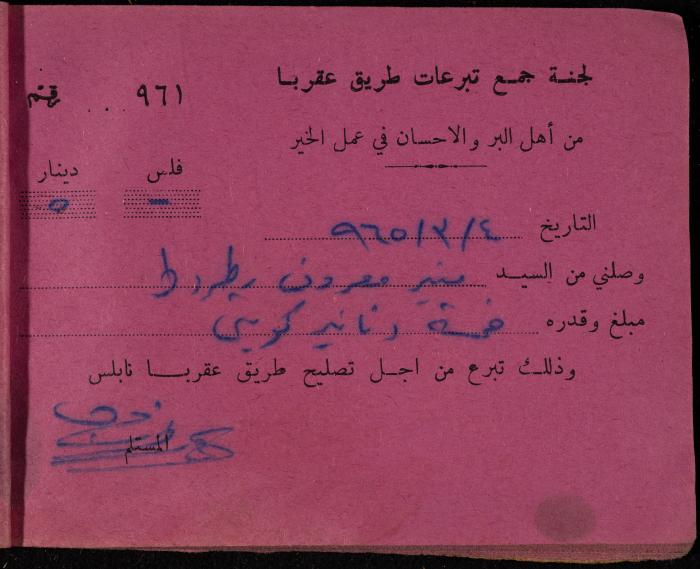 لجنة جمع تبرعات طريق عقربا
٩٦١ . . . رقم
من أهل البر والاحسان في عمل الخير
فلس دينار
- ٥
التاريخ ٩٦٥/٣/٤
وصلني من السيد منير معروف
مبلغ وقدره خمسة دنانير كويتي
وذلك تبرع من اجل تصليح طريق عقربا نابلس
المستلم